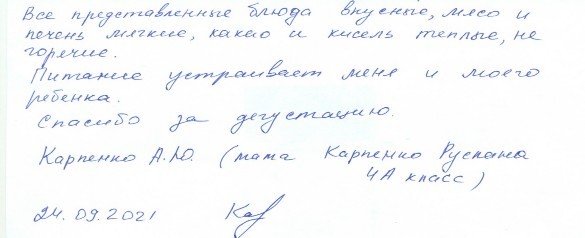 Все представленные блюда вкусные, мясо и
печень мягкие, какао и кисель теплые, не
горячие.
Питание устраивает меня и моего
ребенка.
Спасибо за дегустацию.
Карпенко А.Ю. (мама Карпенко Руслана
4А класс)
24.09.2021